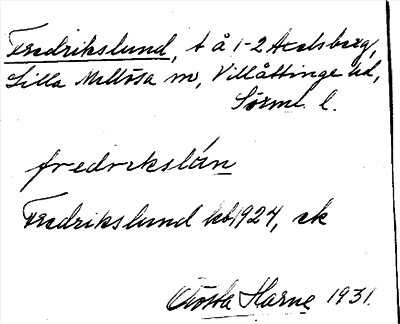 Fredrikslund, t å 1-2 Axelsberg,
Lilla Mellösa sn, Villåttinge hd,
Sörml. l.
fredrikslán
Fredrikslund kb 1924, ek
Gösta Harne 1931.